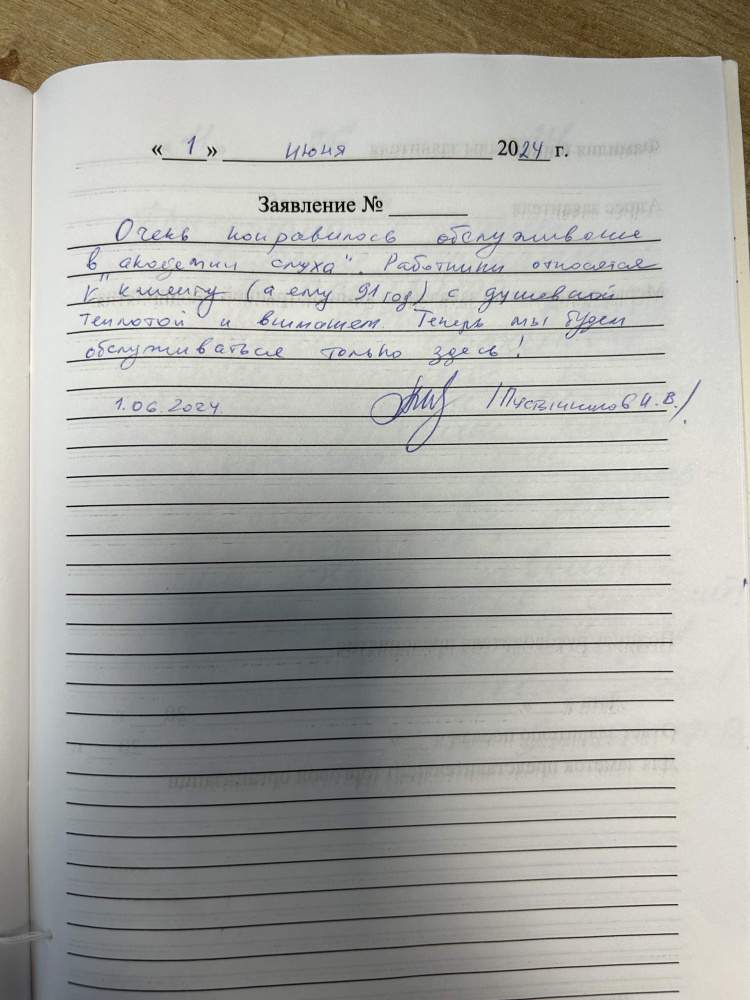 « 1 » июня 2024 г.
Заявление № ______
Очень понравилось обслуживание
в "академии слуха". Работники относятся
к клиенту (а ему 91 год) с душевной
теплотой и вниманием. Теперь мы будем
обслуживаться только здесь!
1.06.2024. /Пустынников И.В./